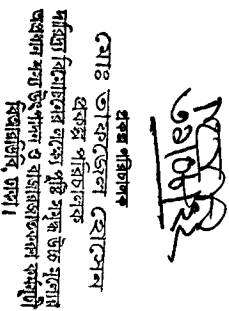 প্রকল্প পরিচালক
মোঃ তাকজেল হোসেন
প্রকল্প পরিচালক
দারিদ্র্য বিমোচনের লক্ষ্যে পুষ্টি সমৃদ্ধ উচ্চ মূল্যের
অপ্রধান শস্য উৎপাদন ও বাজারজাতকরণ কর্মসূচী
বিআরডিবি, ঢাকা।